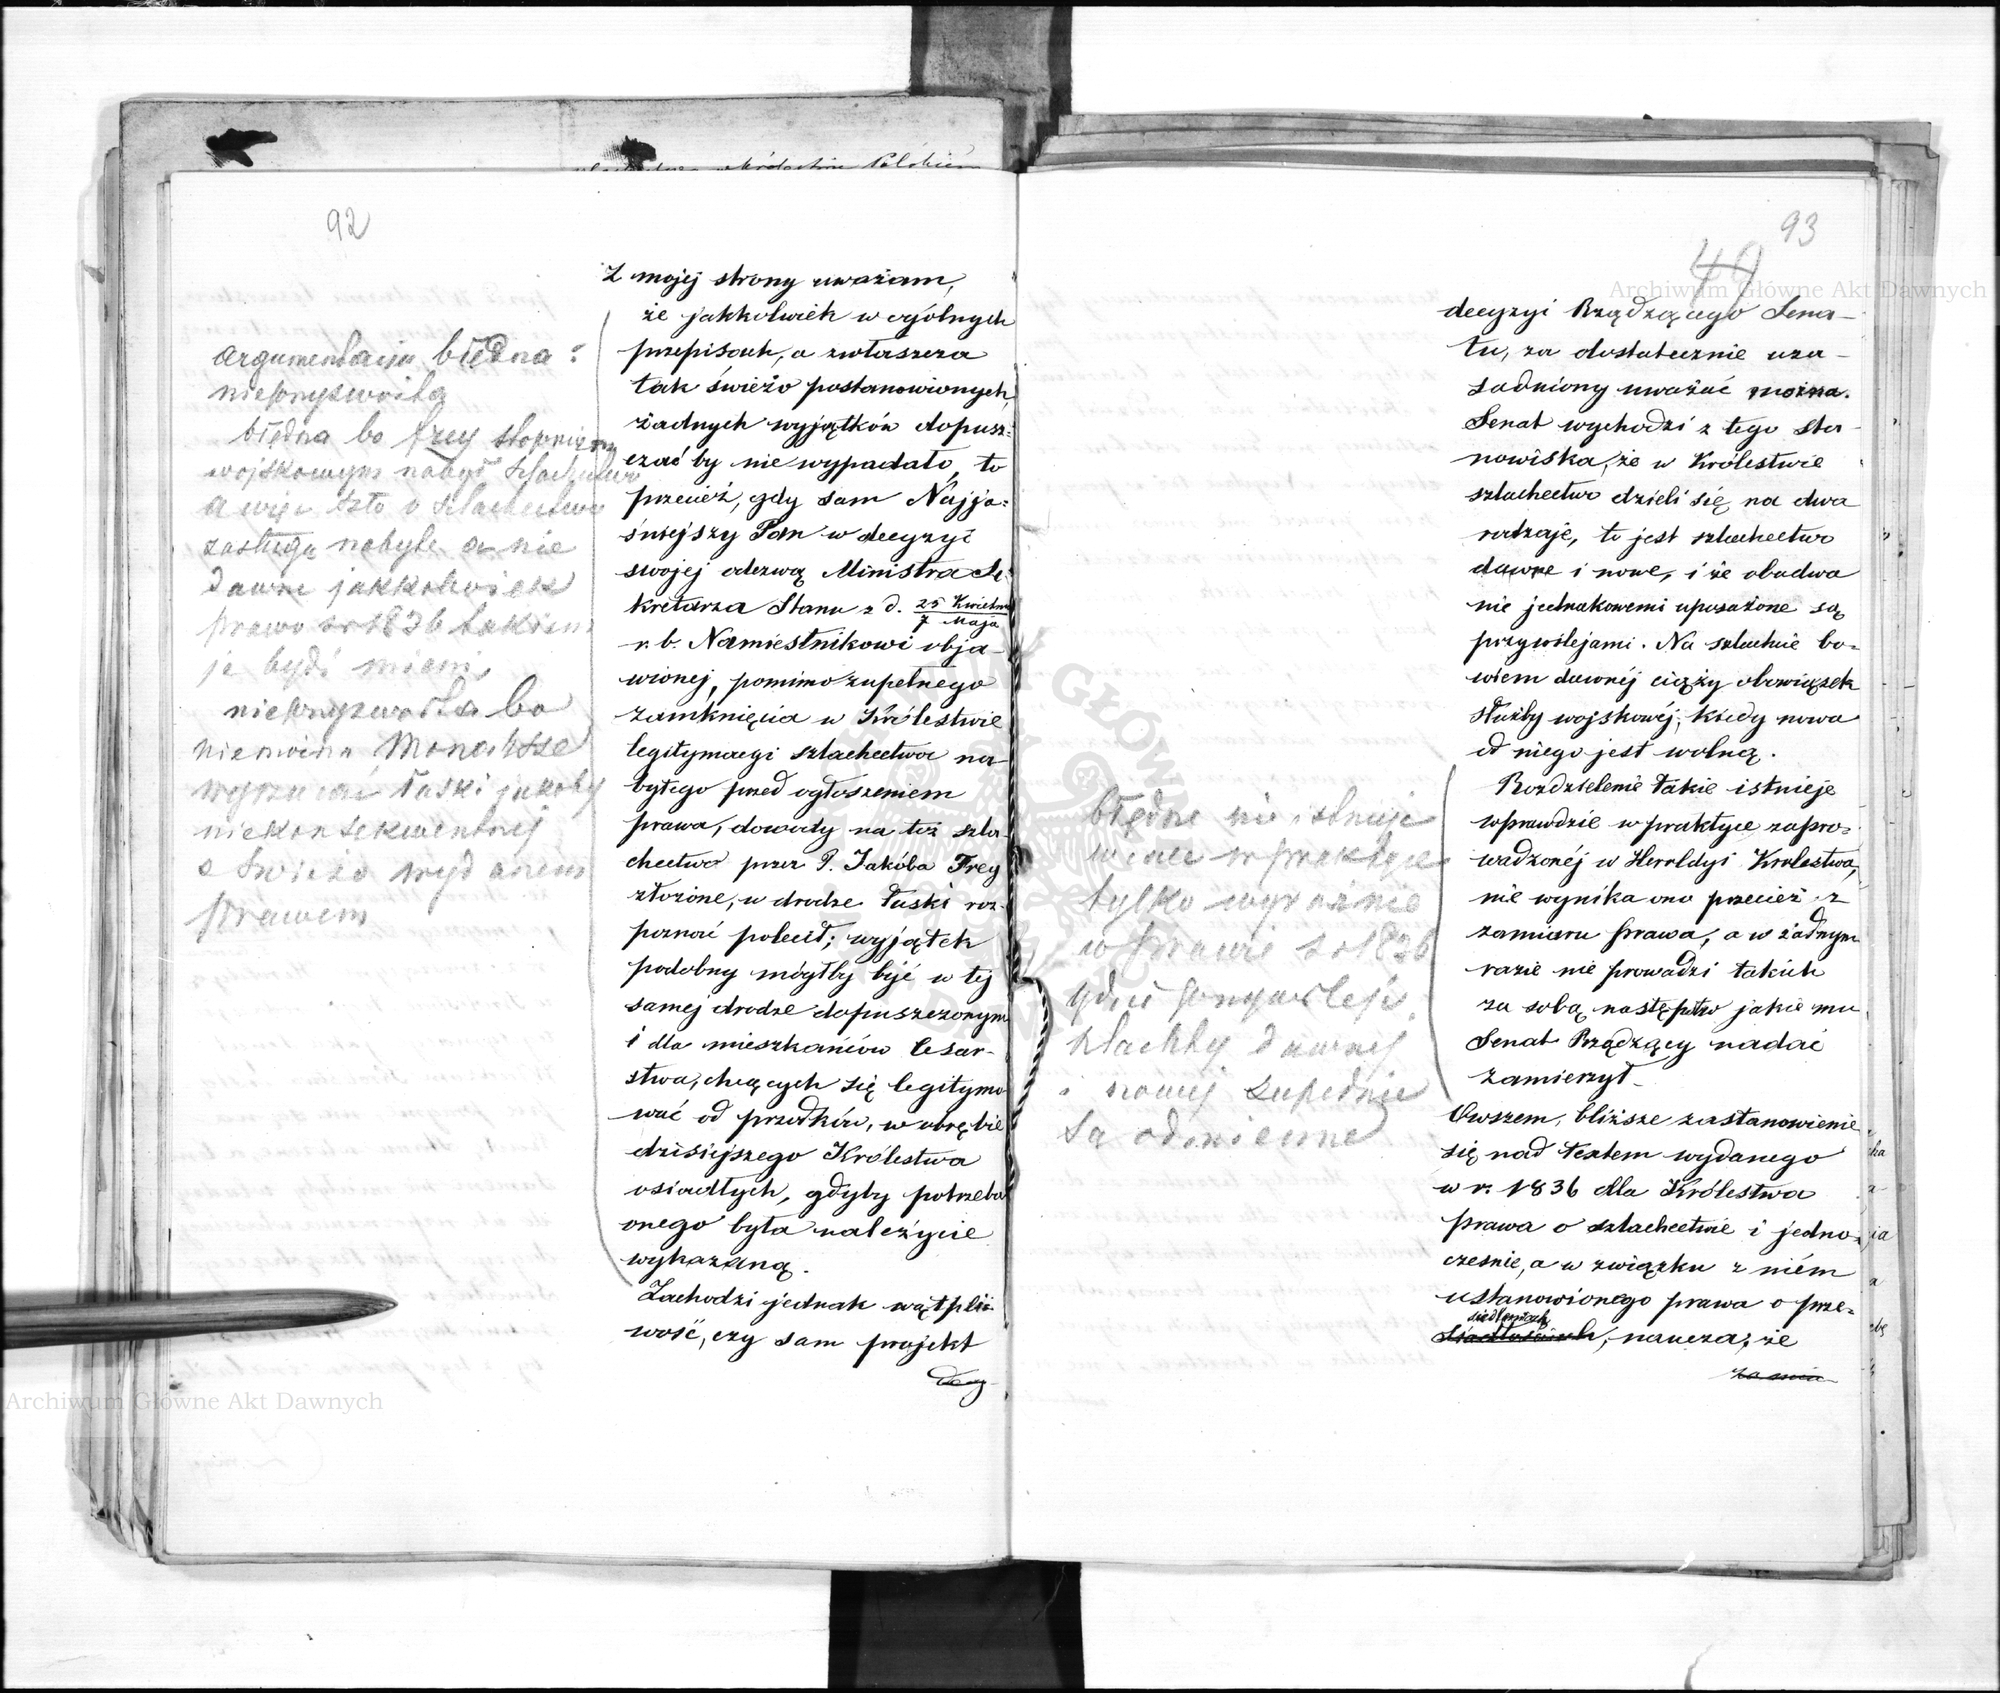 92
Z mojej strony uważam,
że jakkolwiek w ogólnych
przepisach, a zwłaszcza
tak świeżo postanowionych,
żadnych wyjątków dopusz:
czać by nie wypadało, to
przecież, gdy sam Najja:
śniejszy Pan w decyzyi
swojej odezwą Ministra Se:
kretarza Stanu z d. 25 Kwietnia
7 Maja
r. b. Namiestnikowi obja-
wionej, pomimo zupełnego
zamknięcia w Królestwie
legitymacyi szlachectwa na-
bytego przed ogłoszeniem
prawa, dowody na toż szla-
chectwo przez P. Jakóba Frey
złożone, w drodze łaski roz-
poznać polecił; wyjątek
podobny mógłby być w tej
samej drodze dopuszczonym
i dla mieszkańców Cesar-
stwa, chcących się legitymo-
wać od przodków, w obrębie
dzisiejszego Królestwa
osiadłych, gdyby potrzeba
onego była należycie
wykazaną.
Zachodzi jednak wątpli-
wość, czy sam projekt
decy-
argumentacija błędna:
nieprzyzwoita
błędna bo Frey stopniem
wojskowym nabył szlachectwo
a więc szło o szlachectwo
zasługą nabyte a nie
dawne jakkolwiek
prawo z r 1836 takiem
je być mieni.
nieprzyzwoita bo
nie można Monarsze
wyrzucać łaski jakoby
niekonsekwentnej
z świeżo wydanem
prawem
93
49
decyzyi Rządzącego Sena-
tu, za dostatecznie uza-
sadniony uważać można.
Senat wychodzi z tego sta-
nowiska, że w Królestwie
szlachectwo dzieli się na dwa
rodzaje, to jest szlachectwo
dawne i nowe, i że obadwa
nie jednakowemi uposażone są
przywilejami. Na szlachcie bo-
wiem dawnéj ciąży obowiązek
służby wojskowéj, kiedy nowa
od niego jest wolną.
Rozdzielenie takie istnieje
wprawdzie w praktyce zapro-
wadzonéj w Heroldyi Królestwa,
nie wynika ono przecież z
zamiaru prawa, a w żadnym
razie nie prowadzi takich
za sobą następstw jakie mu
Senat Rządzący nadać
zamierzył.
Owszem, bliższe zastanowienie
się nad textem wydanego
w r. 1836 dla Królestwa
prawa o szlachectwie i jedno-
cześnie, a w związku z niém
ustanowionego prawa o prze-
siedleniach
, naucza, że
błędne nie istnieje
wcale w praktyce
tylko wyraźnie
w prawie z r 1836
gdzie przywileje
szlachty dawnej
i nowej zupełnie
są odmienne
Archiwum Główne Akt Dawnych
Archiwum Główne Akt Dawnych